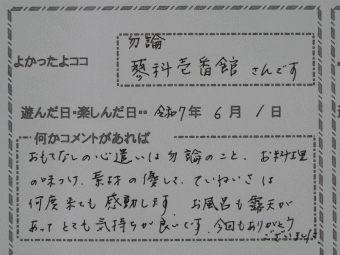 よかったよココ
勿論
蓼科壱番館 さんです
遊んだ日・楽しんだ日・・令和7年 6月 1日
何かコメントがあれば
おもてなしの心遣いは勿論のこと、お料理
の味つけ、素材の優しさ、ていねいさは
何度来ても感動します。お風呂も露天が
あって とても気持ちが良いです。今回もありがとう
ございました